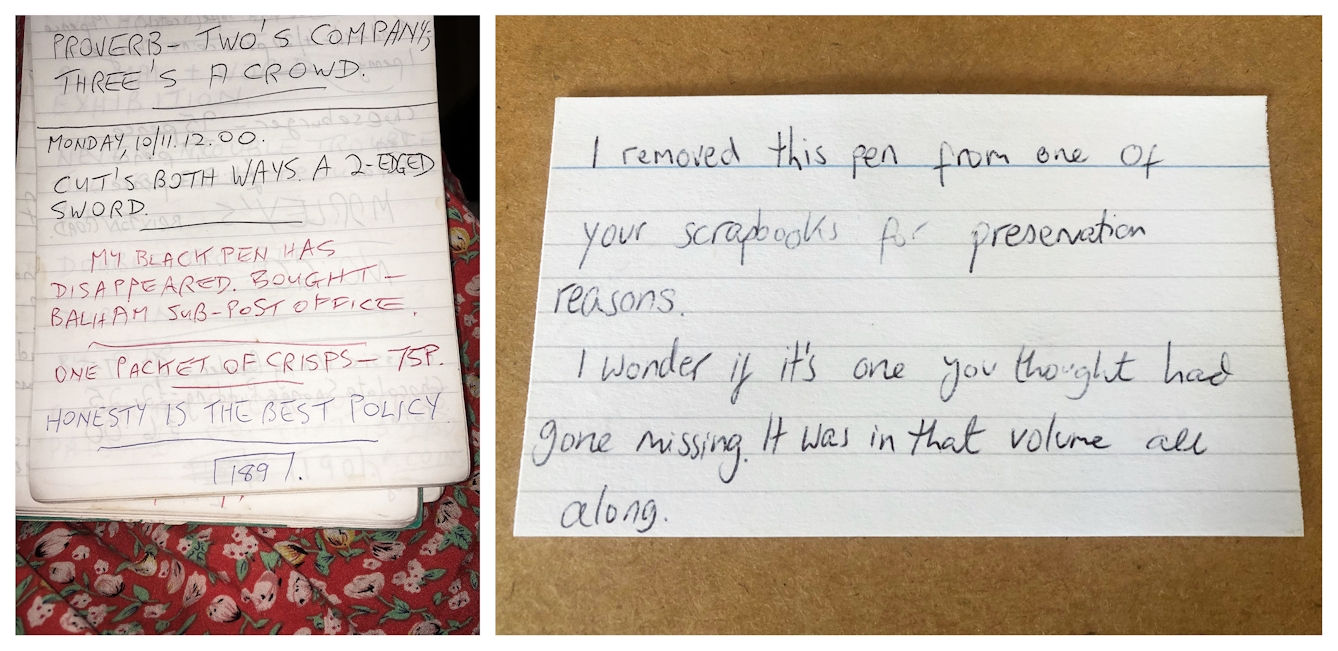 PROVERB– TWO'S COMPANY,
THREE'S A CROWD.
MONDAY, 10/11.12.00.
CUT'S BOTH WAYS. A 2-EDGED
SWORD.
MY BLACK PEN HAS
DISAPPEARED. BOUGHT–
BALHAM SUB-POST OFFICE.
ONE PACKET OF CRISPS– 75P.
HONESTY IS THE BEST POLICY.
189.
I removed this pen from one of
your scrapbooks for preservation
reasons.
I wonder if it's one you thought had
gone missing. It was in that volume all
along.